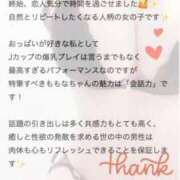 終始、恋人気分で時間を過ごせました🥰
自然とリピートしたくなる人柄の女の子です
✨
おっぱいが好きな私として
Jカップの爆乳プレイは言うまでもなく
最高すぎるパフォーマンスなのですが、
特筆すべきももなちゃんの魅力は「会話力」で
す!
話題の引き出しは多く共感力もとても高く、
癒しと性欲の発散を求める世の中の男性は
肉体も心もリフレッシュできることを保証しま
す✨
THANK